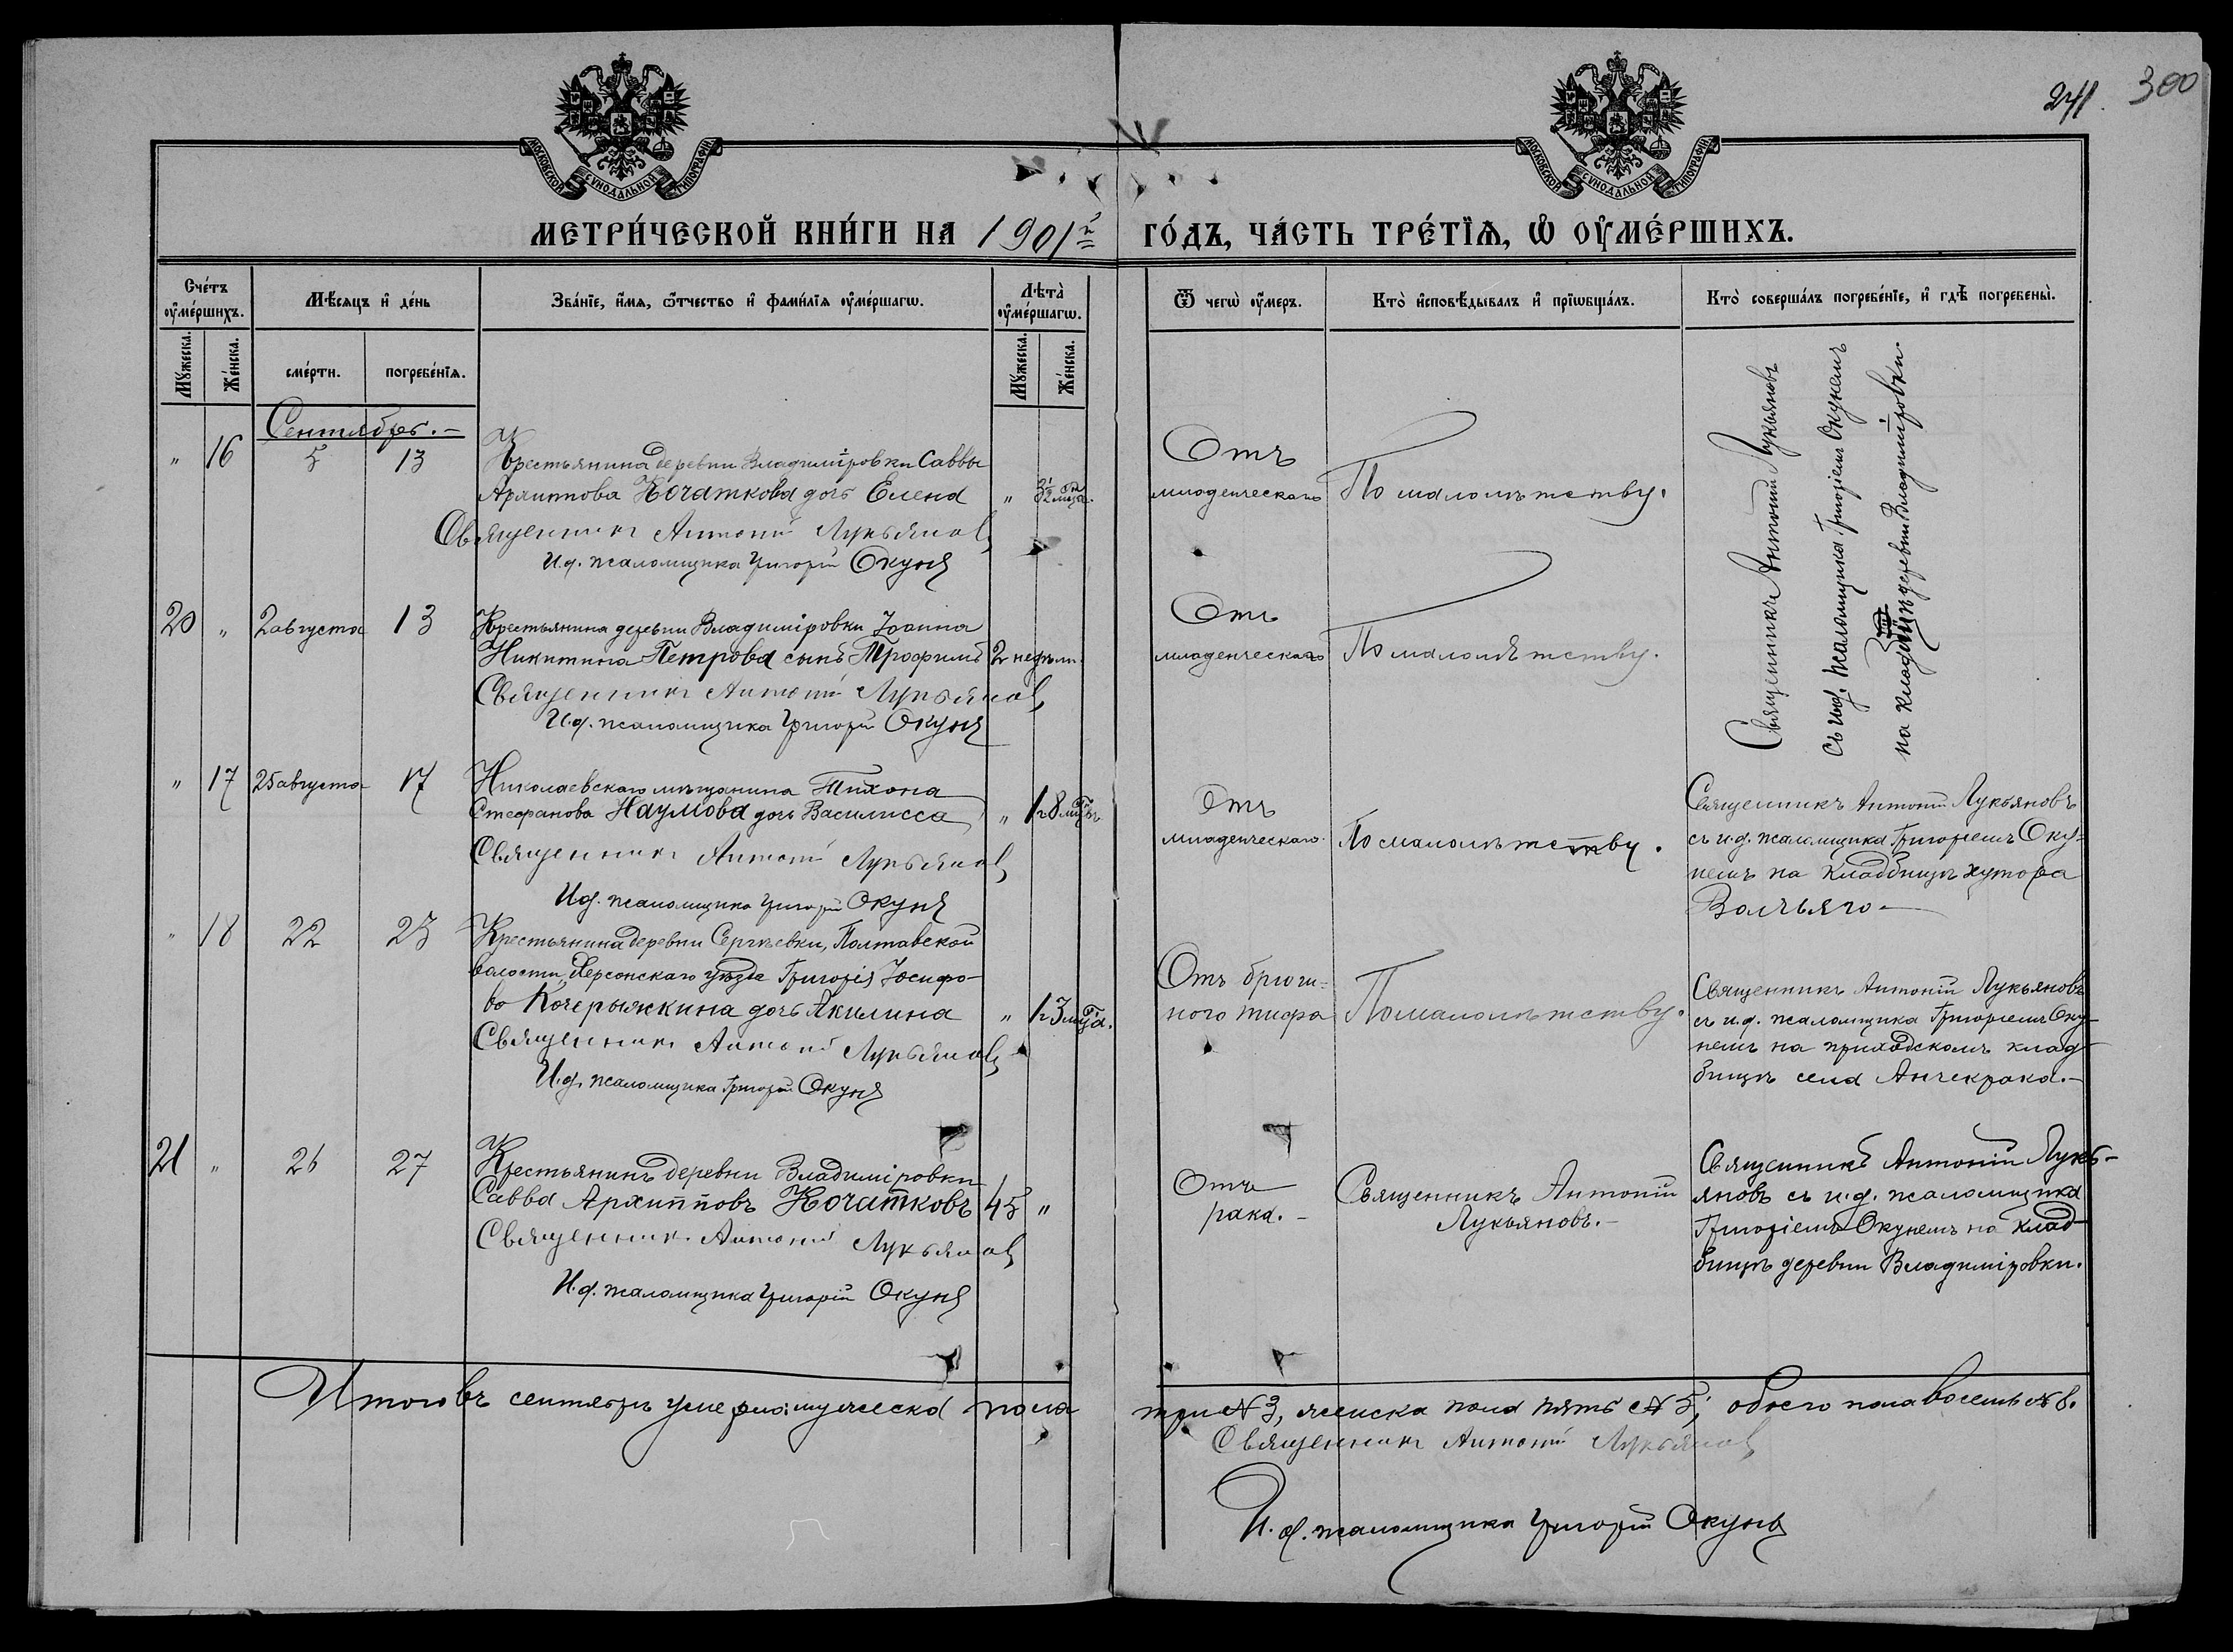 241. 300
МОСКОВСКОЙ СѴНОДАЛЬНОЙ ТИПОГРАФІИ
МОСКОВСКОЙ СѴНОДАЛЬНОЙ ТИПОГРАФІИ
МЕТРИ́ЧЕСКОЙ КНИ́ГИ НА 1901й ГО́ДЪ, ЧА́СТЬ ТРЕ́ТЇѦ, Ѡ҆ ОУ҆МЕ́РШИХЪ.
Сче́тъ оу҆ме́ршихъ.
Мѣ́сяцъ и҆ де́нь
Зва́нїе, и҆́мя, ѻ҆́тчество и҆ фами́лїя оу҆ме́ршагѡ.
Лѣта̀ оу҆ме́ршагѡ.
Ѿ чегѡ̀ оу҆́меръ.
Кто̀ и҆сповѣ́дывалъ и҆ прїѡбща́лъ.
Кто̀ соверша́лъ погребе́нїе, и҆ гдѣ̀ погребены̀.
Мꙋ́жеска.
Же́нска.
сме́рти.
погребе́нїя.
Мꙋ́жеска.
Же́нска.
Сентябрь.-
" 16 5 13 Крестьянина деревни Владиміровки Саввы
Архиппова Кочаткова дочь Елена "
Священникъ Антоній Лукьяновъ
И.д. псаломщика Григорій Окунь
Отъ
младенческаго
По малолѣтству.
Священникъ Антоній Лукьяновъ
съ и.д. псаломщика Григоріемъ Окунемъ
на кладбищѣ деревни Владиміровки.
20 " 2 августа 13 Крестьянина деревни Владиміровки Іоанна
Никитина Петрова сынъ Трофимъ 2 недѣли
Священникъ Антоній Лукьяновъ
И.д. псаломщика Григорій Окунь
Отъ
младенческаго
По малолѣтству.
" 17 25 августа 17 Николаевскаго мѣщанина Тихона
Стефанова Наумова дочь Василисса " 1 г 8 мѣц.
Священникъ Антоній Лукьяновъ
И.д. псаломщика Григорій Окунь
Отъ
младенческаго.
По малолѣтству.
Священникъ Антоній Лукьяновъ
съ и.д. псаломщика Григоріемъ Оку=
немъ на кладбищѣ хутора
Волчьяго-
" 18 22 23 Крестьянина деревни Сергѣевки, Полтавской
волости, Херсонскаго уѣзда Григорія Іосифо-
ва Кочерыжкина дочь Акилина " 1 г 3 мѣца.
Священникъ Антоній Лукьяновъ
И.д. псаломщика Григорій Окунь
Отъ брюш=
ного тифа
По малолѣтству.
Священникъ Антоній Лукьяновъ
съ и.д. псаломщика Григоріемъ Оку-
немъ на приходскомъ клад-
бищѣ села Анчекрака.-
21 " 26 27 Крестьянинъ деревни Владиміровки
Савва Архипповъ Кочатковъ 45 "
Священникъ Антоній Лукьяновъ
И.д. псаломщика Григорій Окунь
Отъ
рака.-
Священникъ Антоній
Лукьяновъ.-
Священникъ Антоній Лукь-
яновъ съ и.д. псаломщика
Григоріемъ Окунемъ на клад-
бищѣ деревни Владиміровки.
Итого въ сентябрѣ умерло: мужеска пола три № 3, женска пола пять № 5; обоего пола восемь № 8.
Священникъ Антоній Лукьяновъ
И.д. псаломщика Григорій Окунь